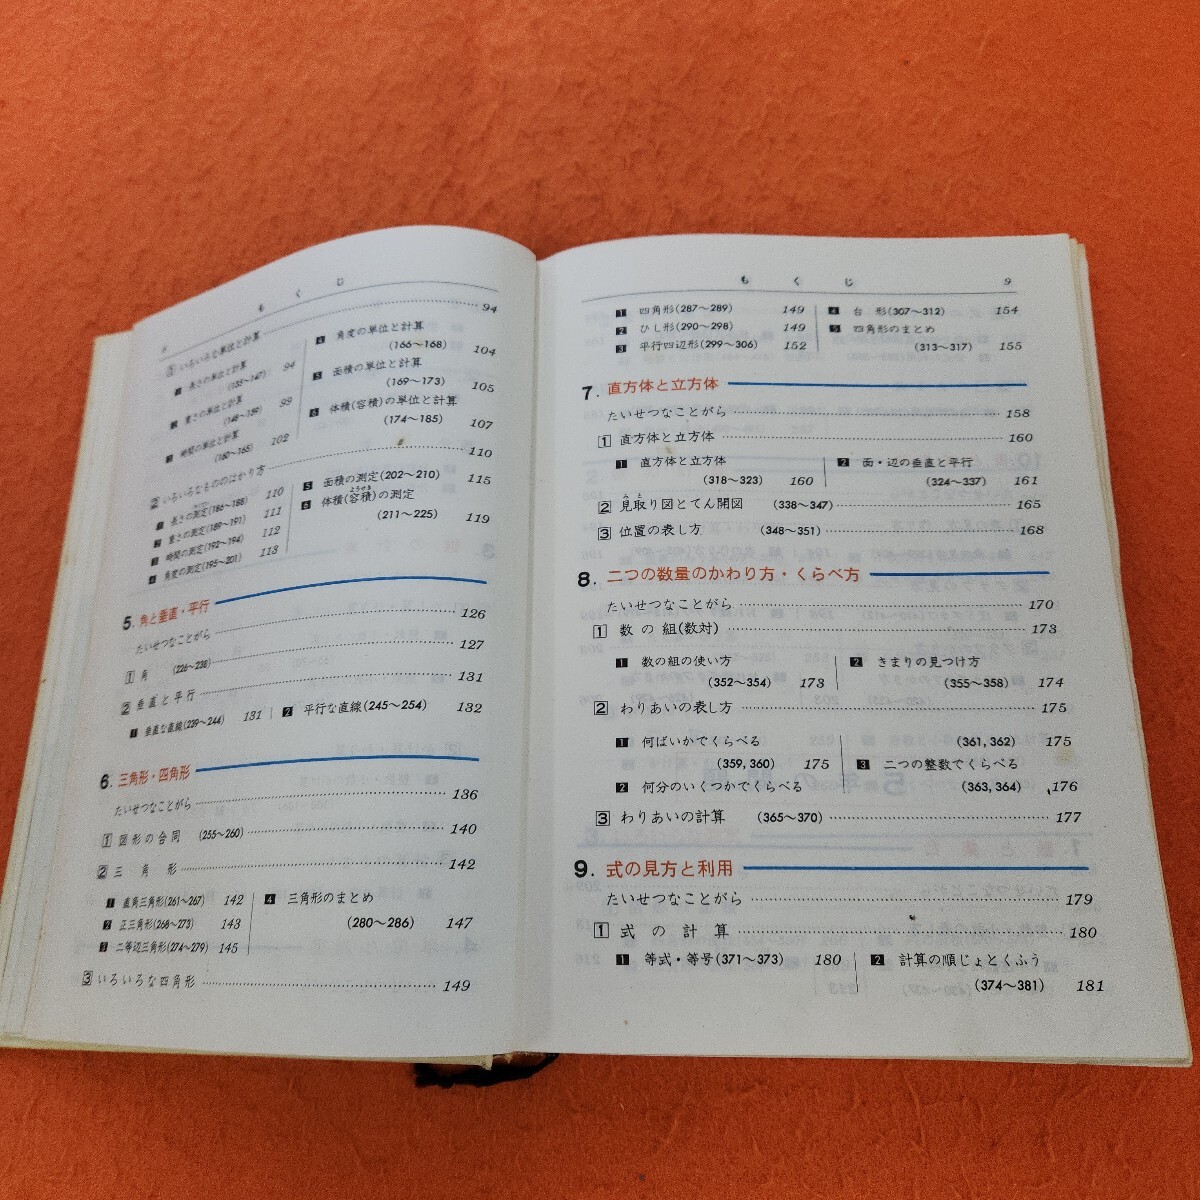 8
も く じ
1 いろいろな単位と計算 94
1 長さの単位と計算
94
2 重さの単位と計算
99
3 時間の単位と計算
(160〜165) 102
4 角度の単位と計算
(166〜168) 104
5 面積の単位と計算
(169〜173) 105
6 体積(容積)の単位と計算
(174〜185) 107
2 いろいろなもののはかり方 110
1 長さの測定(186〜188) 110
2 重さの測定(189〜191) 111
3 時間の測定(192〜194) 112
4 角度の測定(195〜201) 113
5 面積の測定(202〜210) 115
6 体積(容積)の測定
ようせき
(211〜225) 119
5. 角と垂直・平行
たいせつなことがら 126
1 角 (226〜238) 127
2 垂直と平行 131
1 垂直な直線(239〜244) 131
2 平行な直線(245〜254) 132
6. 三角形・四角形
たいせつなことがら 136
1 図形の合同 (255〜260) 140
2 三角形 142
1 直角三角形(261〜267) 142
2 正三角形(268〜273) 143
3 二等辺三角形(274〜279) 145
4 三角形のまとめ
(280〜286) 147
3 いろいろな四角形 149
も く じ
9
1 四角形(287〜289) 149
2 ひし形(290〜298) 149
3 平行四辺形(299〜306) 152
4 台形(307〜312) 154
5 四角形のまとめ
(313〜317) 155
7. 直方体と立方体
たいせつなことがら 158
1 直方体と立方体 160
1 直方体と立方体
(318〜323) 160
2 面・辺の垂直と平行
(324〜337) 161
み と
2 見取り図とてん開図 (338〜347) 165
3 位置の表し方 (348〜351) 168
8. 二つの数量のかわり方・くらべ方
たいせつなことがら 170
1 数の組(数対) 173
1 数の組の使い方
(352〜354) 173
2 きまりの見つけ方
(355〜358) 174
2 わりあいの表し方 175
1 何ばいかでくらべる
(359,360) 175
2 何分のいくつかでくらべる
(361,362) 175
3 二つの整数でくらべる
(363,364) 176
3 わりあいの計算 (365〜370) 177
9. 式の見方と利用
たいせつなことがら 179
1 式の計算 180
1 等式・等号(371〜373) 180
2 計算の順じょとくふう
(374〜381) 181